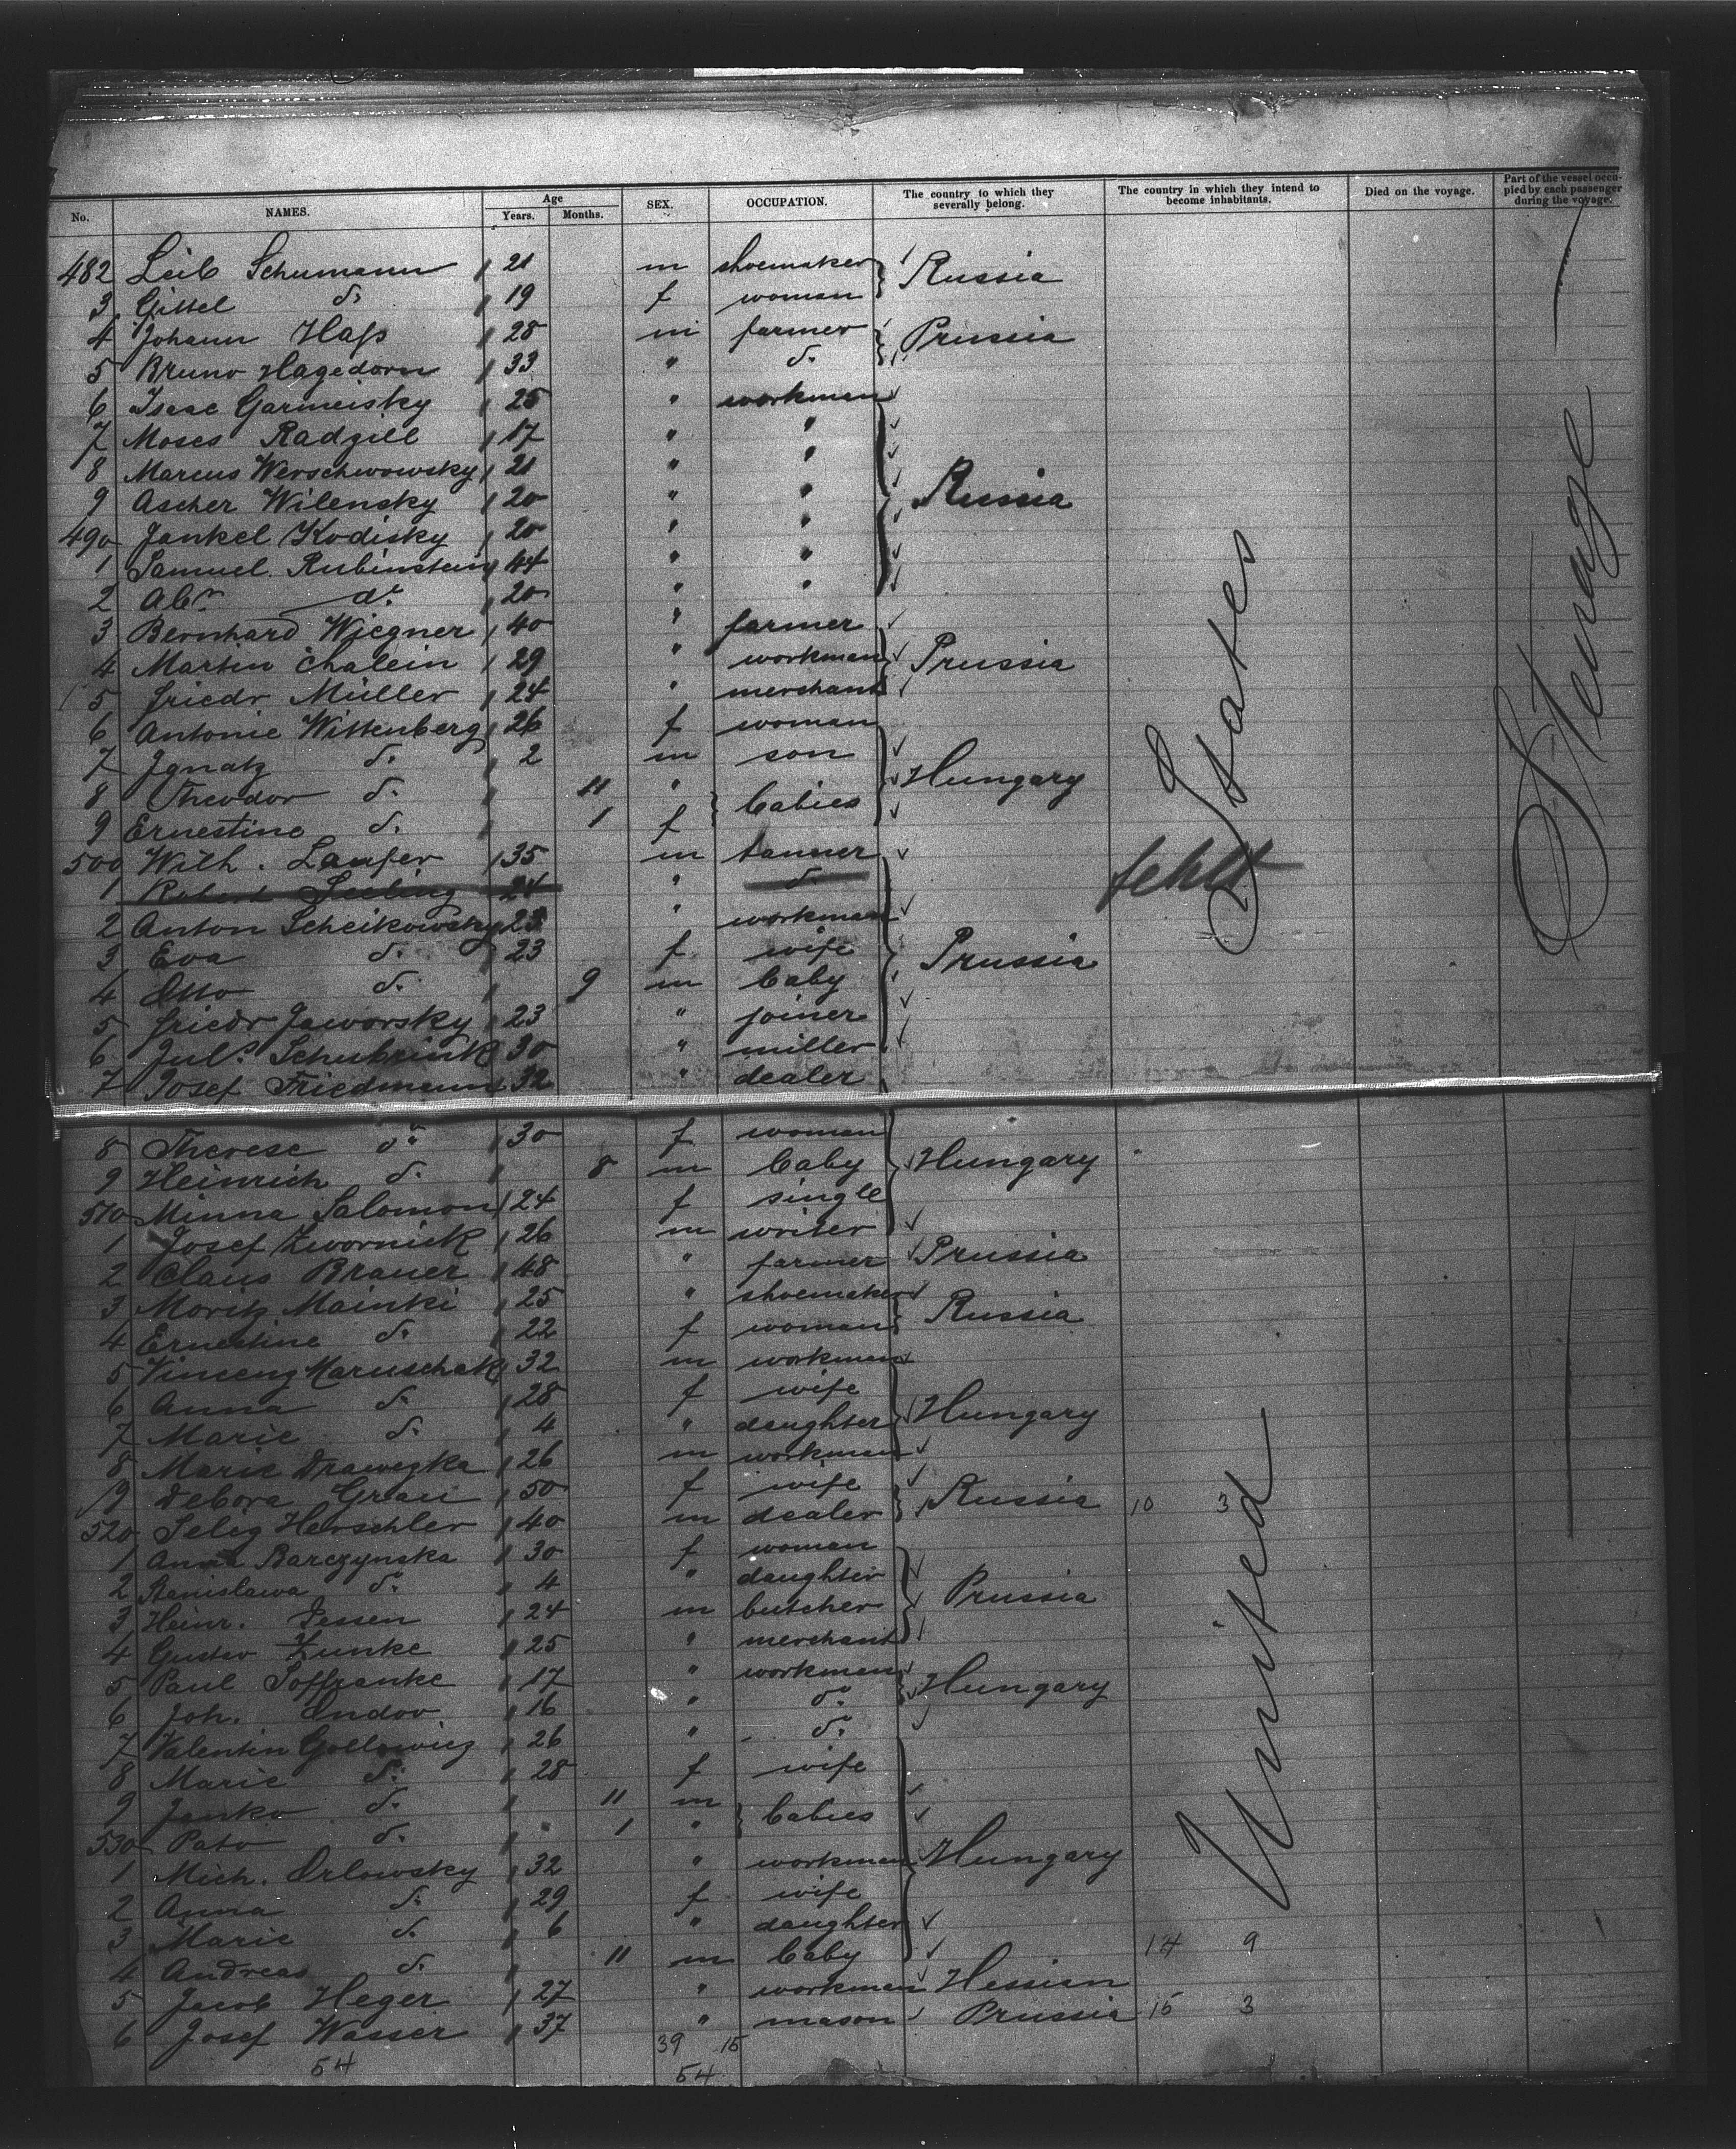 No. NAMES. Age Years. Months. SEX. OCCUPATION. The country to which they severally belong. The country in which they intend to become inhabitants. Died on the voyage. Part of the vessel occupied by each passenger during the voyage.
482 Leib Schumann 21 m shoemaker Russia
3 Gittel do. 19 f woman
4 Johann Haß 28 m farmer Prussia
5 Bruno Hagedorn 33 " do.
6 Isaac Garmeisky 25 " workman
7 Moses Radzill 17 " "
8 Marcus Werschwowsky 21 " "
9 Ascher Wilensky 20 " " Russia
490 Jankel Kodisky 20 " "
1 Samuel Rubinstein 44 " "
2 Abr. do. 20 " "
3 Bernhard Wiegner 40 " farmer
4 Martin Chalein 29 " workman Prussia
5 Friedr Müller 24 " merchant
6 Antonie Wittenberg 26 f woman
7 Ignatz do. 2 m son Hungary
8 Theodor do. 11 " babies
9 Ernestine do. 1 f
500 Wilh. Laufer 35 m tanner fehlt
1 Robert 24 " do.
2 Anton Scheikowsky 25 " workman
3 Eva do. 23 f wife Prussia
4 Otto do. 9 m baby
5 Friedr Jaworsky 23 " joiner
6 Juls. Schubrink 30 " miller
7 Josef Friedmann 32 " dealer
8 Therese do. 30 f woman
9 Heinrich do. 8 m baby Hungary
510 Minna Salomon 24 f single
1 Josef Zwornick 26 m writer
2 Claus Brauer 48 " farmer Prussia
3 Moritz Mainki 25 " shoemaker Russia
4 Ernestine do. 22 f woman
5 Vincenz Maruschak 32 m workman
6 Anna do. 28 f wife Hungary
7 Marie do. 4 " daughter
8 Marie Drawezka 26 m workman
9 Debora Grau 50 f wife Russia 10 3
520 Selig Herschler 40 m dealer
1 Anna Barczynska 30 f woman
2 Stanislawa do. 4 " daughter Prussia
3 Heinr. Jessen 24 m butcher
4 Gustav Zunke 25 " merchant
5 Paul Soffranke 17 " workman Hungary
6 Joh. Ondov 16 " do.
7 Valentin Gollowicz 26 " do.
8 Marie do. 28 f wife
9 Janko do. 11 m babies
530 Pato do. 1 "
1 Mich. Orlowsky 32 " workman Hungary
2 Anna do. 29 f wife
3 Marie do. 6 " daughter
4 Andreas do. 11 m baby 14 9
5 Jacob Heger 27 " workman Hessien
6 Josef Wasser 37 " mason Prussia 15 3
39 15
54 54
United States
Steerage